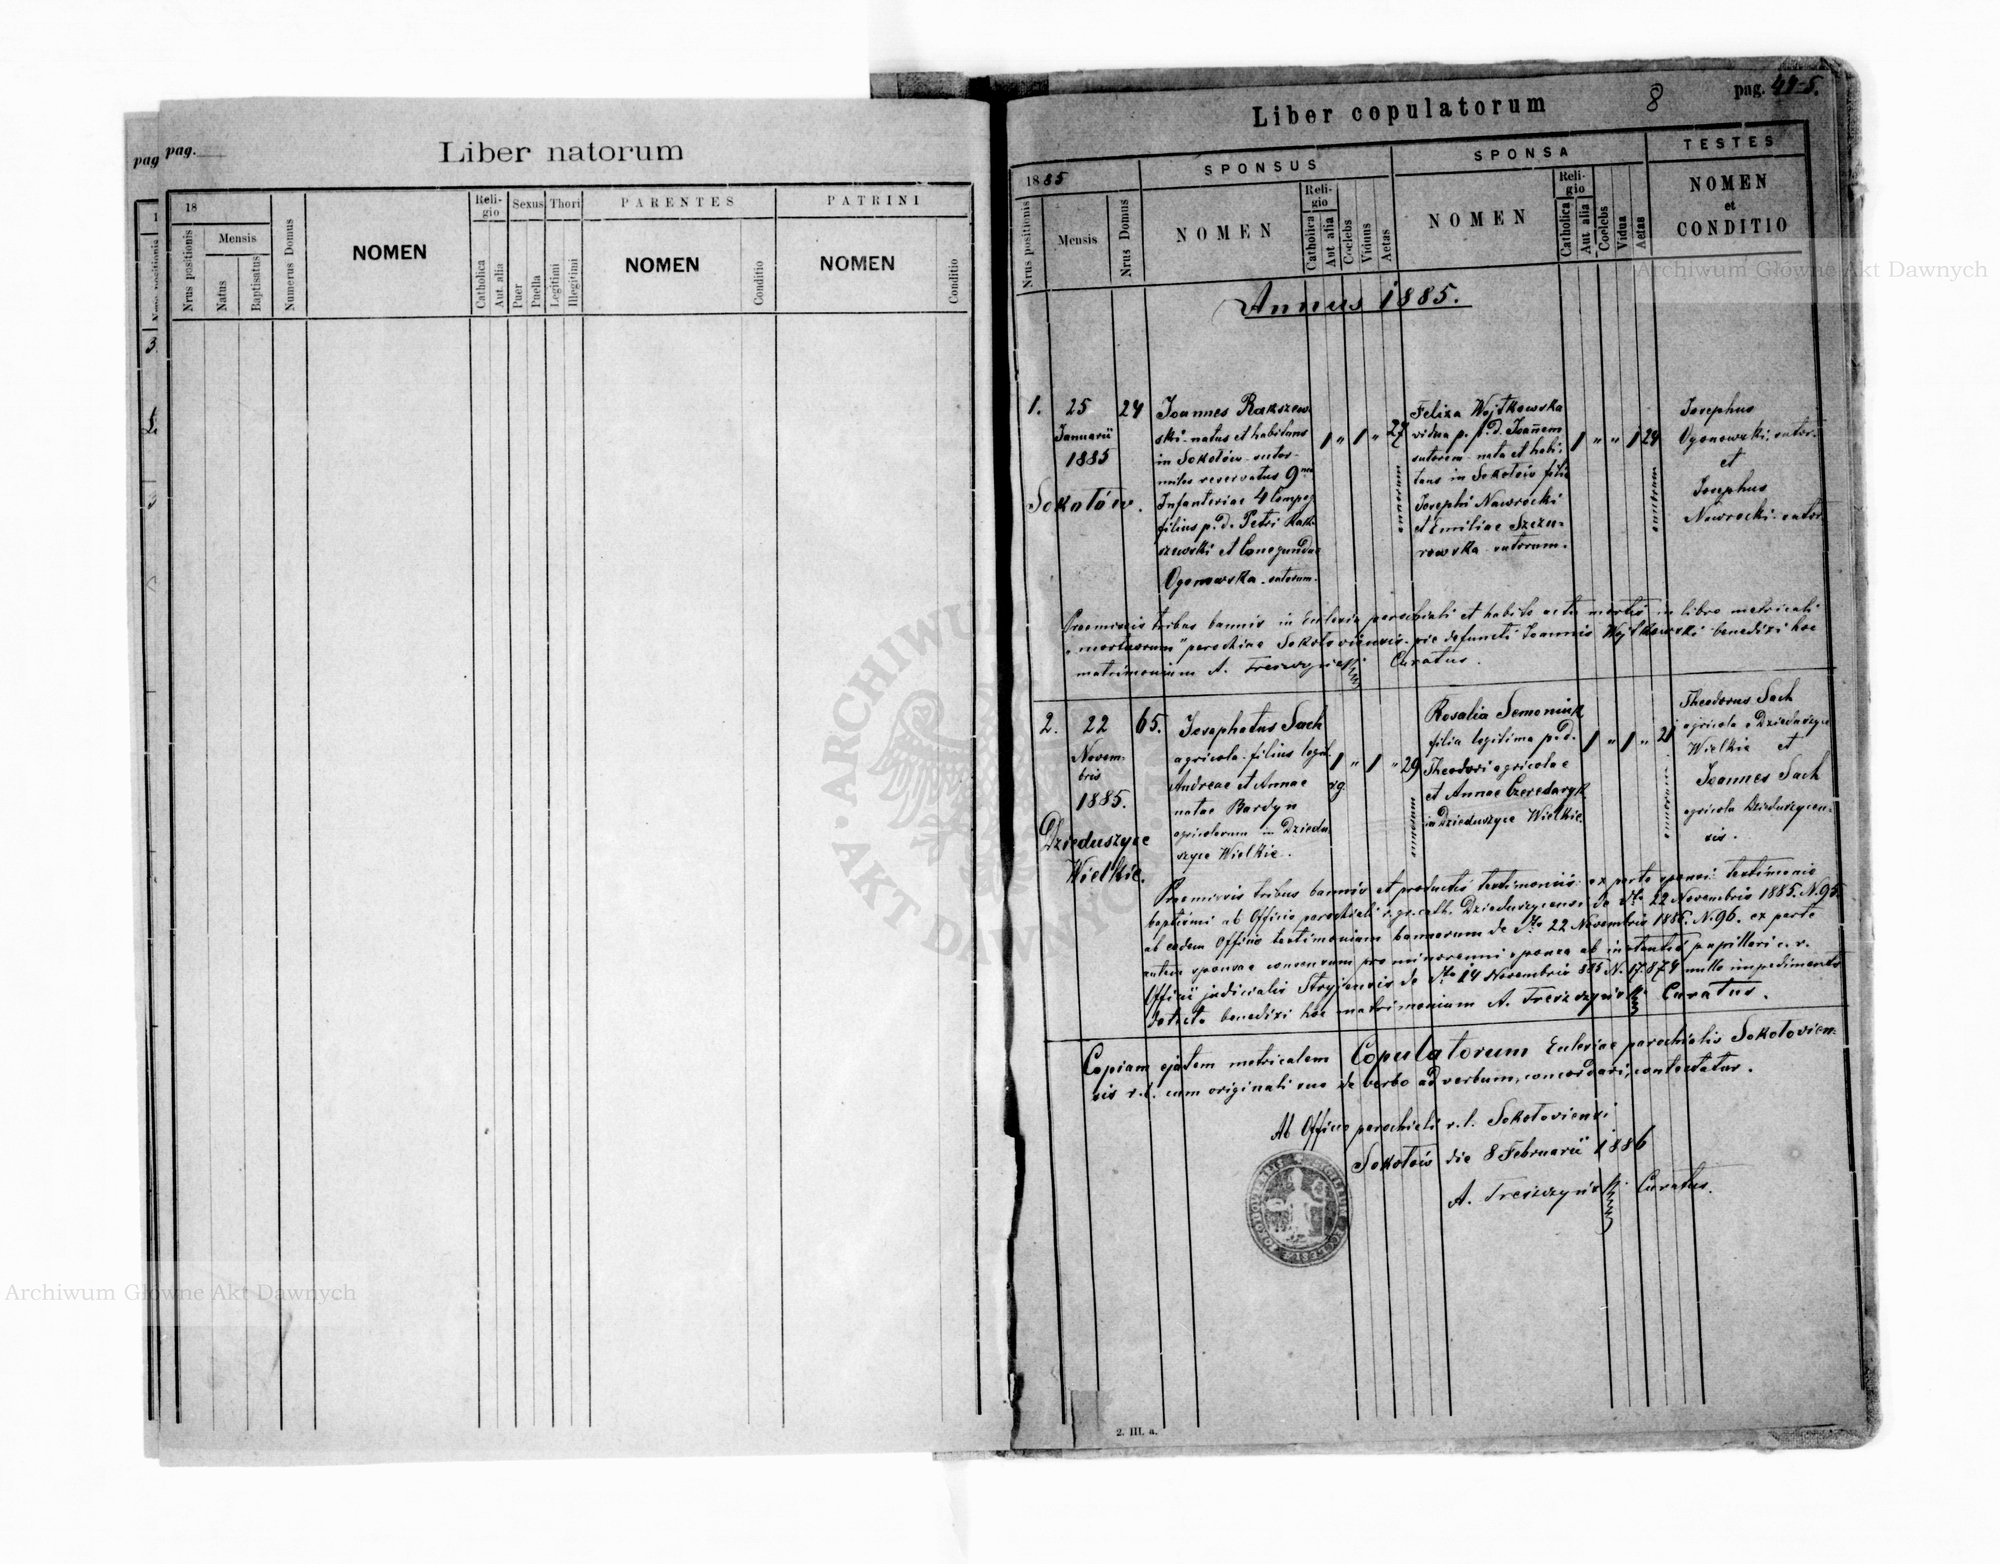 pag
pag.
Liber natorum
18
Mensis
Nrus positionis
Natus
Baptisatus
Numerus Domus
NOMEN
Reli-
gio
Catholica
Aut. alia
Sexus
Puer
Puella
Thori
Legitimi
Illegitimi
PARENTES
NOMEN
Conditio
PATRINI
NOMEN
Conditio
Liber copulatorum
8
pag.
1885
Nrus positionis
Mensis
Nrus Domus
SPONSUS
NOMEN
Reli-
gio
Catholica
Aut alia
Coelebs
Viduus
Aetas
SPONSA
NOMEN
Reli-
gio
Catholica
Aut alia
Coelebs
Vidua
Aetas
TESTES
NOMEN
et
CONDITIO
Annus 1885.
1.
25
Januarii
1885
Sokołów.
24
Joannes Rakszew
ski natus et habitans
in Sokołów sutor
miles reservatus 9
Infanteriae 4
filius p. d. Petri Rak
szewski et Cunegundae
Ogonowska sutorum.
1 " 1 " 27
annorum
Felixa Wojtkowska
vidua p. p. d. Joannem
sutorem nata et habi
tans in Sokołów filia
Josephi Nawrocki
et Emiliae Szczu-
rowska sutorum.
1 " " 1 24
annorum
Josephus
Ogonowski sutor
et
Josephus
Nawrocki sutor
Praemissis tribus bannis in Ecclesia parochiali et habito actu mortis in libro metricali
"mortuorum" parochiae Sokołoviensis pie defuncti Joannis Wojtkowski benedixi hoc
matrimonium A. Treszczyński Curatus.
2.
22
Novem-
bris
1885.
Dzieduszyce
Wielkie.
65.
Josephatus Sach
agricola filius legit.
Andreae et Annae
natae Bardyn
agricolarum in Dziedu
szyce Wielkie.
1 " 1 " 29
rg.
annorum
Rosalia Semoniuk
filia legitima p. d.
Theodori agricolae
et Annae Czeredaryk
in Dzieduszyce Wielkie.
1 " 1 " 21
annorum
Theodorus Sach
agricola e Dzieduszyce
Wielkie et
Joannes Sach
agricola Dzieduszycen-
sis.
Praemissis tribus bannis et productis testimoniis: ex parte sponsi testimonio
baptismi ab Officio parochiali r. gr. cath. Dzieduszycensi de dto 22 Novembris 1885. N. 95.
ab eodem Officio testimonium bannorum de dto 22 Novembris 1885. N. 96. ex parte
autem sponsae consensum pro minorenni sponsa ab instantia pupillari c. r.
Officii judicialis Stryjensis de dto 14 Novembris 885 N. 17.874 nullo impedimento
detecto benedixi hoc matrimonium A. Treszczyński Curatus.
Copiam ejusdem metricalem Copulatorum Ecclesiae parochialis Sokołovien-
sis r. l. cum originali suo de verbo ad verbum, concordari, contestatur.
Ab Officio parochiali r. l. Sokołoviensi
Sokołów die 8 Februarii 1886
A. Treszczyński Curatus.
2. III. a.
Archiwum Główne Akt Dawnych
Archiwum Główne Akt Dawnych
ARCHIWUM
AKT DAWNYCH